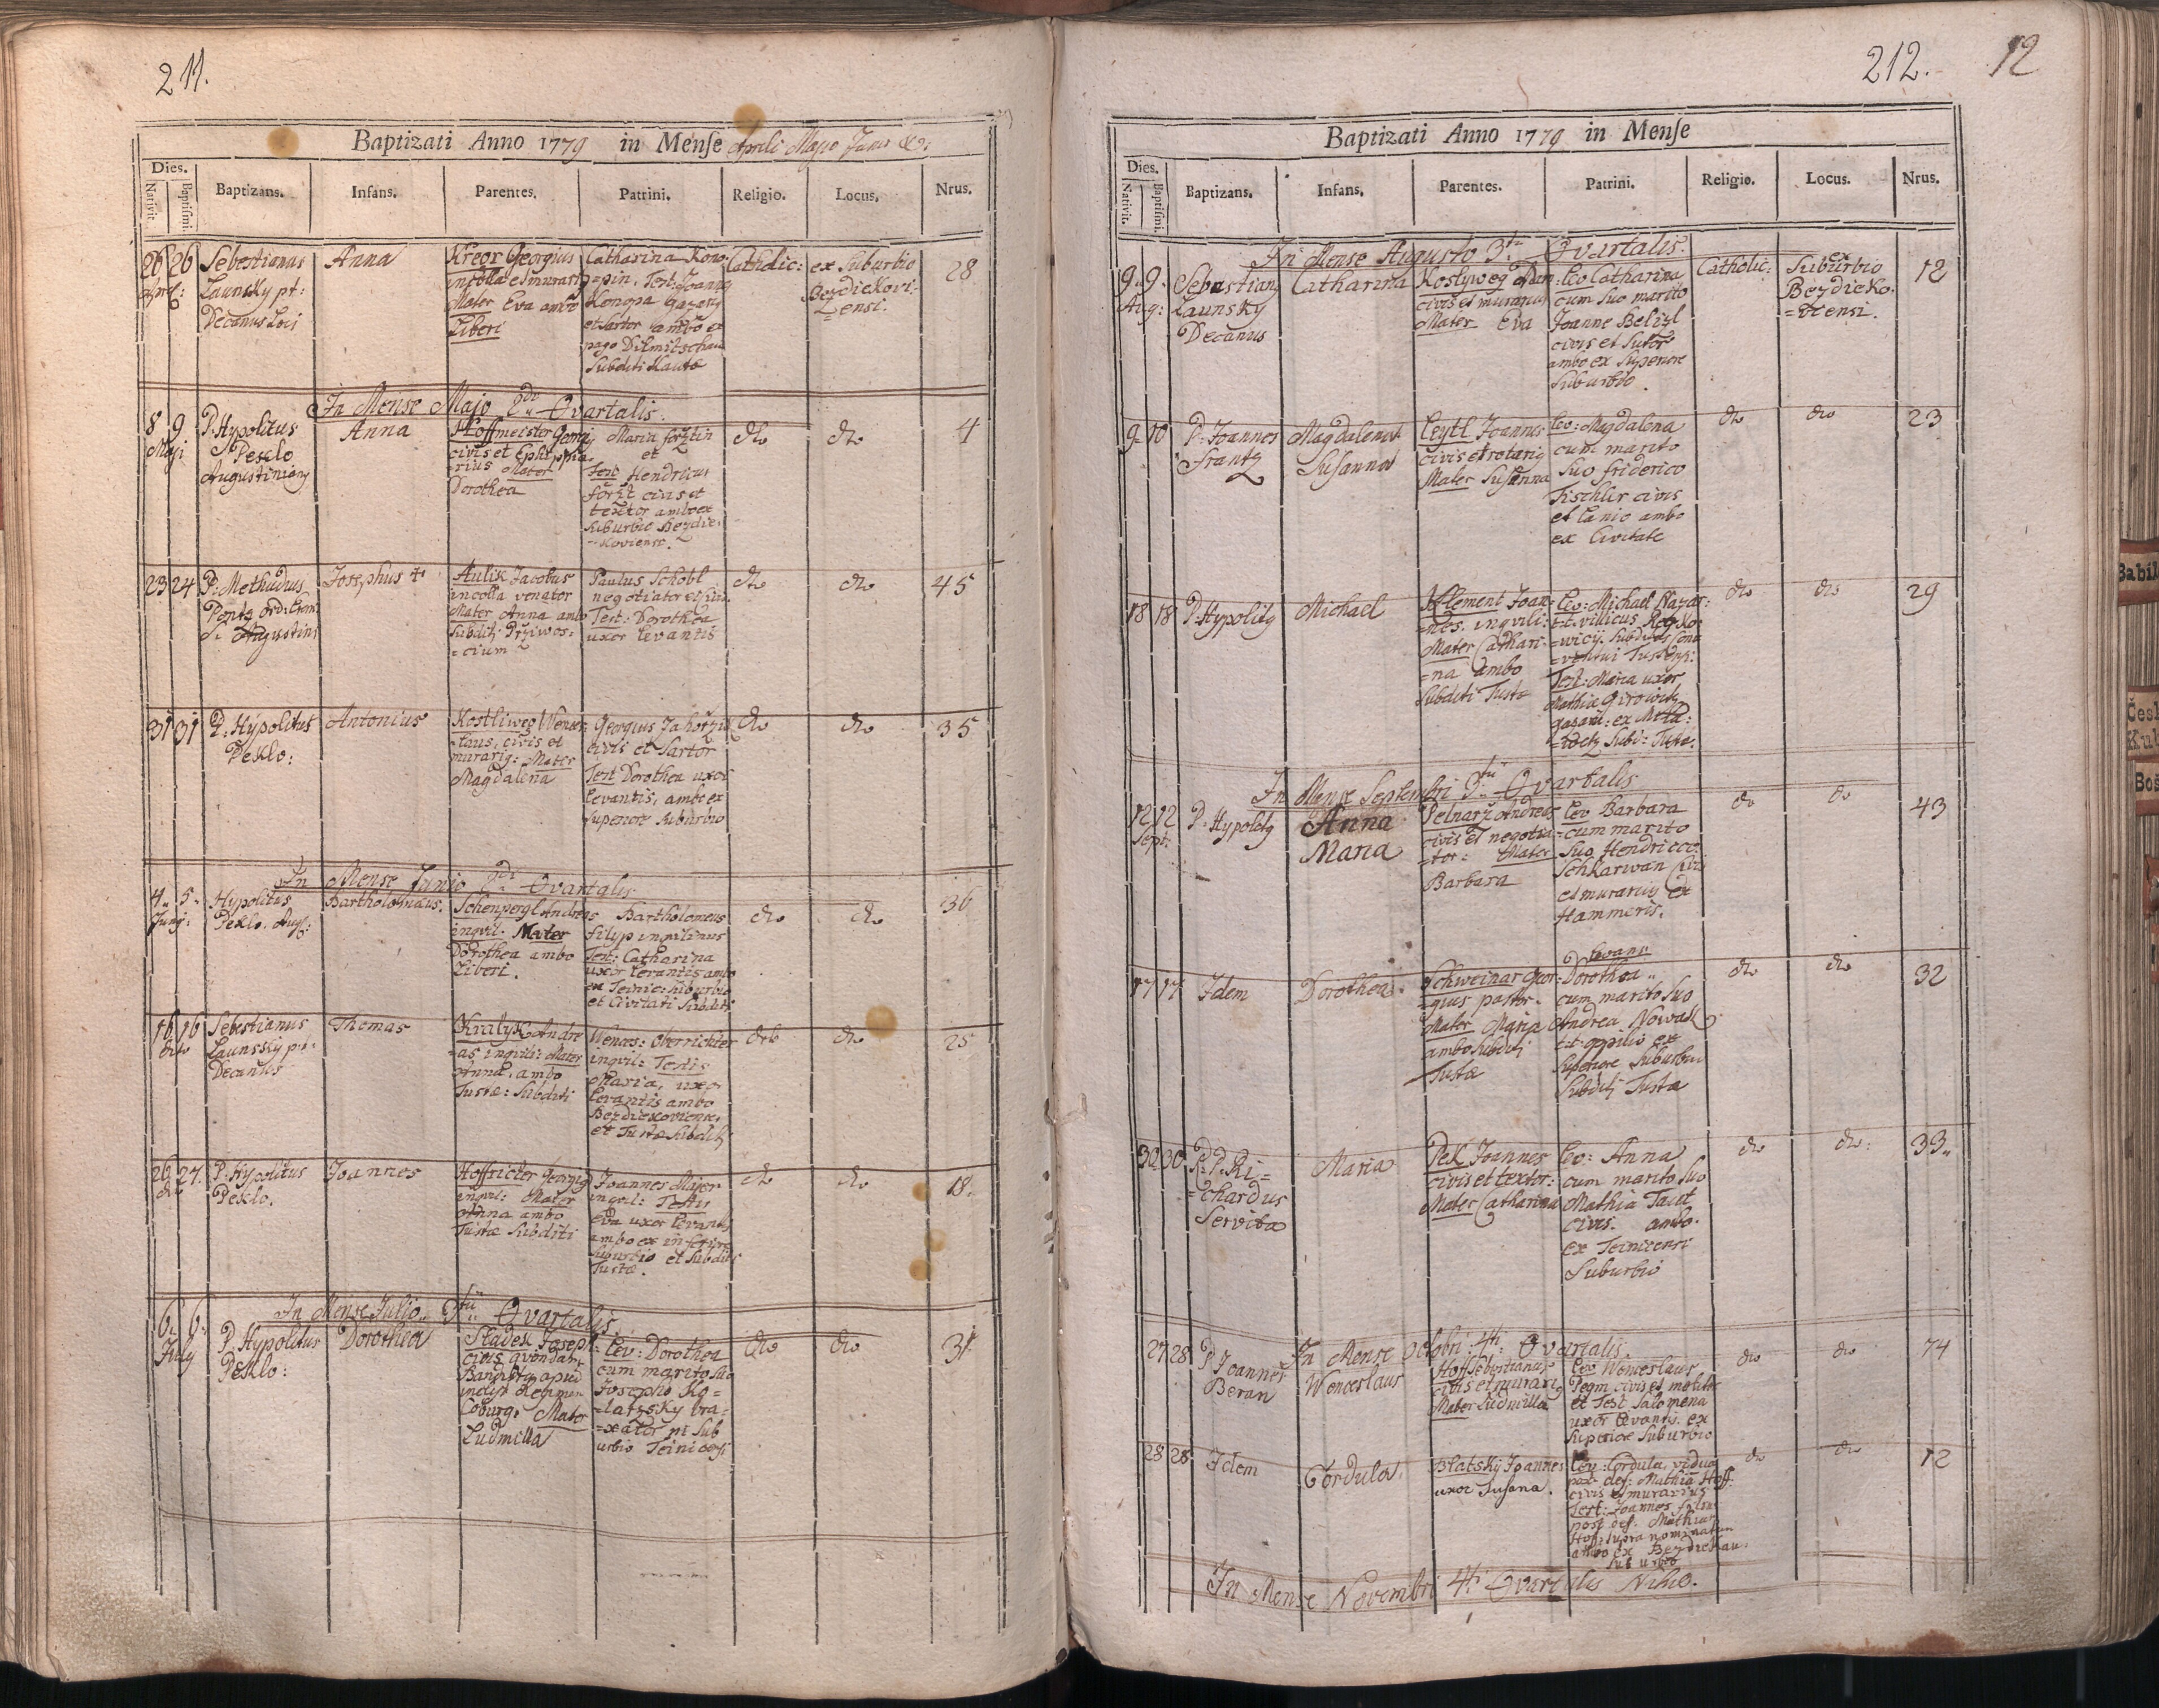 211.
Baptizati Anno 1779 in Menſe Aprili Majo Junio
Dies.
Nativit.
Baptiſmi.
Baptizans.
Infans.
Parentes.
Patrini.
Religio.
Locus.
Nrus.
26 26
Sebestianus
Launsky pt:
Decanus Loci
Anna
Kreor Georgius
incolla et murarig
Mater Eva ambo
Liberi
Catharina Kow
=pin. Test: Joannes
Konopa
et Sartor ambo ex
pago Dilmitschau
Subditi Kautæ
Catholic:
ex Suburbio
Bezdiekovi-
=ensi.
28
In Mense Majo 2di Qvartalis.
8 9
Maji
P. Hypolitus
Pesklo
Augustiniang
Anna
Hoffmeister Georgij
civis et Ephippia
=rius Mater
Dorothea
Maria förstin
et
Test Hendricus
förszt civis et
textor ambo ex
Suburbio Bezdie-
=koviense.
dto
dto
4
23 24
P. Methudius
Ord: Erem:
S. Augustini
Josephus +
Aulik Jacobus
incolla venator
Mater Anna ambo
Subditj Przíwos=
=cium
Paulus Schobl
negotiator et
Test: Dorothea
uxor Levantis
dto
dto
45
31 31
P. Hypolitus
Pesklo:
Antonius
Kostliweg Wences:
=laus, civis et
murarig: Mater
Magdalena
Georgius
civis et Sartor
Test Dorothea uxor
Levantis, ambo ex
superiore suburbio
dto
dto
35
In Mense Junio 2di Qvartalis
4. 5.
Junij:
Hypolitus
Pesklo. Aug:
Bartholomæus.
Schenpergl Andreas
inqvil. Mater
Dorothea ambo
Liberi.
Bartholomeus
filyp inqvilinus
Test: Catharina
uxor Levantis ambo
ex Teinic: Suburbio
et Civitati Subditj
dto
dto
36
16 16
dto
Sebestianus
Launssky p.t.
Decanus
Thomas
Kralyk Andre
=as inqvili: Mater
Anna. ambo
Tustæ: Subditi
Wences: Oberrichter
inqvil: Testis
Maria, uxor
Levantis ambo
Bezdiekoviense,
et Tustæ Subditj
dto
dto
25
26 27.
dto
P. Hypolitus
Pesklo.
Joannes
Hoffricter Georgig
inqvil: Mater
Anna ambo
Tustæ Subditi
Joannes Majer
inqvil: Testis
Eva uxor Levantis
ambo ex inferiore
Suburbio et Subditj
Tustæ.
dto
dto
18.
In Mense Julio. 3tii Qvartalis
6. 6.
July
P. Hypolitus
Pesklo:
Dorothea
Sladek Joseph:
civis qvondam
apud
Coburg: Mater
Ludmilla
Lev: Dorothea
cum marito suo
Josepho Ko=
=latzsky bra=
=xator pt Sub
urbio Teinicensi
dto
dto
31.
212. 12
Baptizati Anno 1779 in Menſe
Dies.
Nativit.
Baptiſmi.
Baptizans.
Infans.
Parentes.
Patrini.
Religio.
Locus.
Nrus.
In Mense Augusto 3tii Qvartalis.
9. 9.
Aug:
Sebastiang
Launsky
Decanus
Catharina
Kostyweg Adam
civis et murarius
Mater Eva
Leo Catharina
cum suo marito
Joanne Belizl
civis et Sutor
ambo ex Superiore
Suburbio.
Catholic:
ex
Suburbio
Bezdieko-
=vensi.
12
9. 10
P. Joannes
Frantz
Magdalena
Susanna
Leytl Joannes
civis et rotarig
Mater Susanna
Lev: Magdalena
cum marito
Suo friderico
Tischler civis
et Lanio ambo
ex Civitate
dto
dto
23
18 18
P. Hypolitg
Michael
Klement Joan=
=nes. inqvili:
Mater Cathari-
=na ambo
Subditi Tustæ
Lev: Michael Nazar:
t.t. villicus
Subditus Con
=ventui
Test: Maria uxor
Mathiæ Girowitz
Subi: Tustæ.
dto
dto
29
In Mense Septembri 3tii Qvartalis
12 12
Sept:
P. Hypolitg
Anna
Maria
Pelnarz Andreas
civis et negotia
=tor: Mater
Barbara
Lev Barbara
cum marito
Suo Hendricco
Schkarwan Civis
et murarig ex
Hammeris.
dto
do
43
17 17
Idem
Dorothea.
Schweinar Geor:
=gius pastor.
Mater Maria
ambo Subditj
Tustæ
Levans
Dorothea
cum marito suo
Andrea Nowak
t.t. oppilio ex
Superiore Suburbio
Subditj Tustæ
dto
dto
32
30 30
R. P. Ri=
=chardus
Servita
Maria
Pek Joannes
civis et textor:
Mater Catharina
Lev: Anna
cum marito Suo
Mathia Taut
civis. ambo.
ex Teinicensi
Suburbio
dto
dto:
33
In Mense Octobri. 4ti Qvartalis.
27 28
P Joannes
Beran
Wenceslaus
Hoff Sebestianus
civis et murarig
Mater Ludmilla
Lev Wenceslaus
Pegm civis et molitor
et Test Salomena
uxor Levantis. ex
Superiore Suburbio
dto
do
74
28 28
Idem
Cordula.
Blatsky Joannes
uxor Susana.
Lev: Cordula, vidua
post def: Mathia Hoff
civis et murarius
Test: Joannes filius
post def. Mathias
Hoff supra nominatum
ambo ex Bezdiekau.
Suburbio
dto
do
12
In Mense Novembri 4ti Qvartalis Nihil.